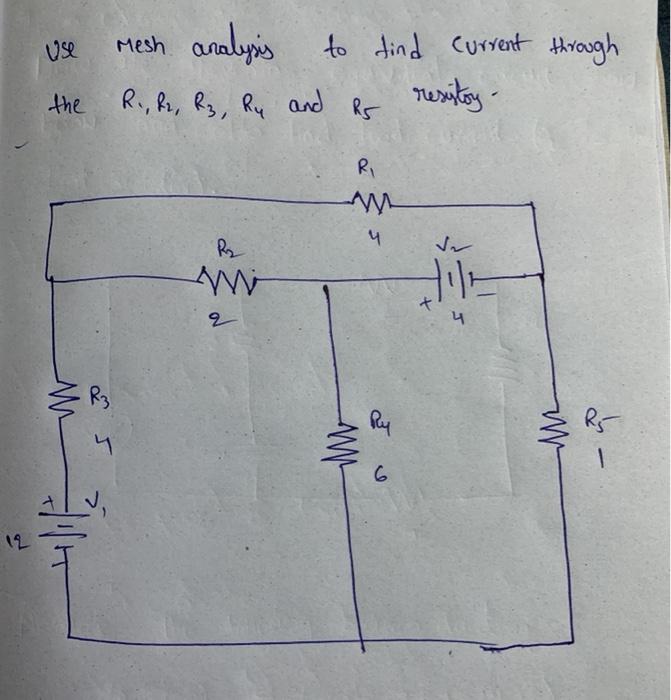 Use Mesh analysis to find current through
the R1, R2, R3, R4 and R5 resistors.
R1
4
R2
2
V2
+ -
4
R3
4
R4
6
R5
1
+ V1
12